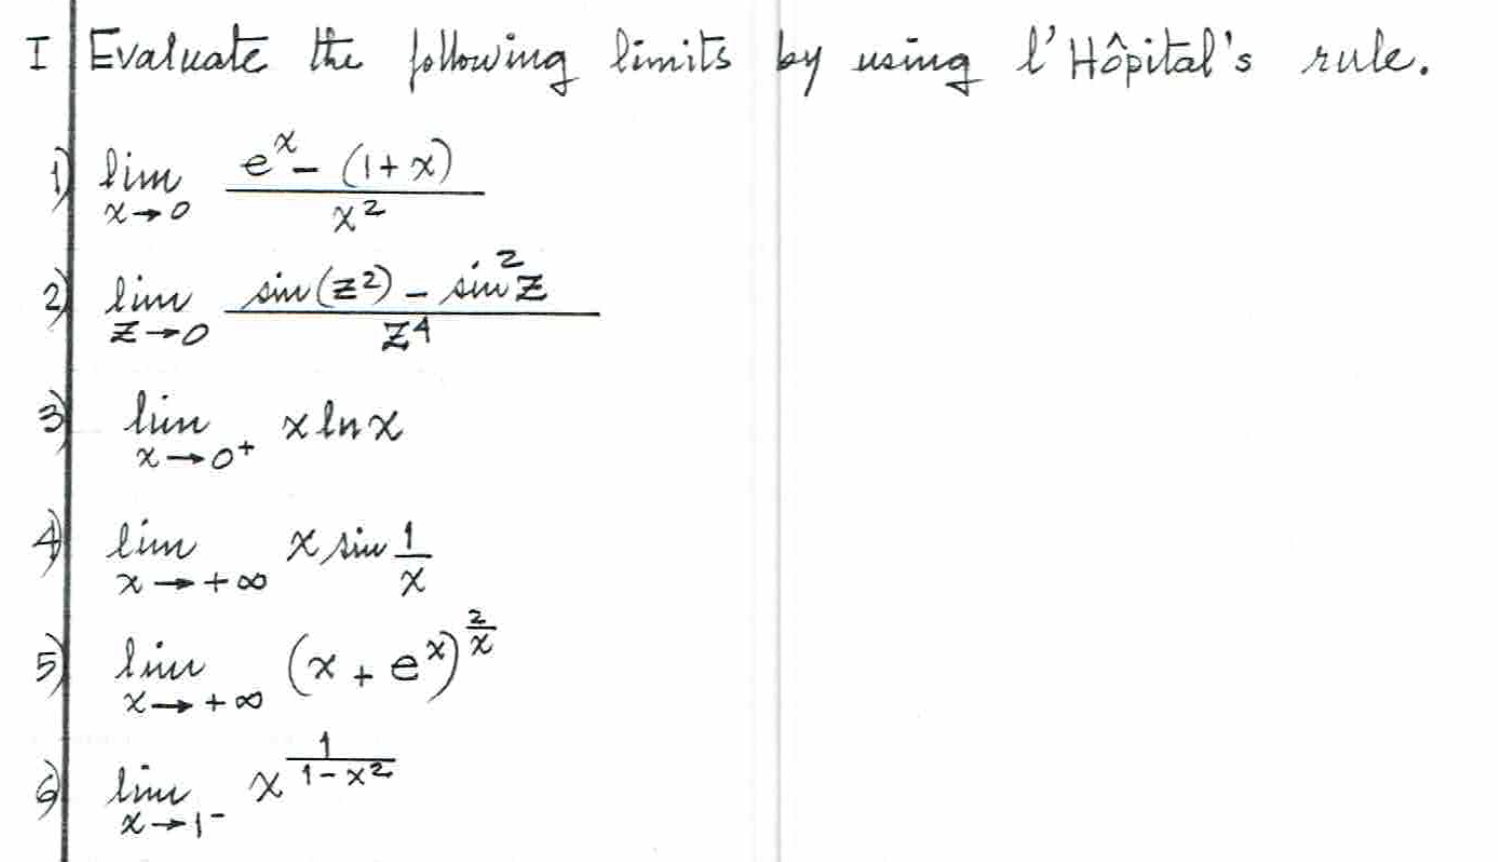 I Evaluate the following limits by using l'Hôpital's rule.
1) lim x→0 (e^x - (1+x)) / x^2
2) lim z→0 (sin(z^2) - sin^2 z) / z^4
3) lim x→0^+ x ln x
4) lim x→+∞ x sin 1/x
5) lim x→+∞ (x + e^x)^(2/x)
6) lim x→1^- x^(1/(1-x^2))